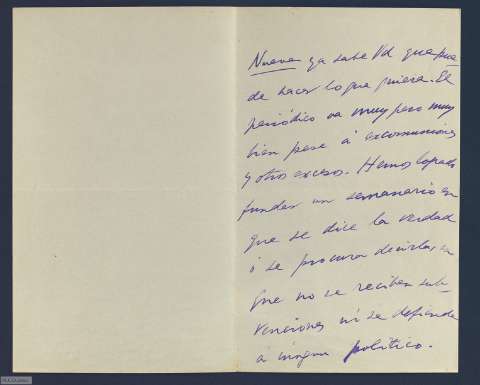 Nueva ya sabe Vd que pue
de hacer lo que quiera. El
periódico va muy pero muy
bien pese á excomuniones
y otros excesos. Hemos logrado
fundar un semanario en
que se dice la verdad
ó se procura decirla, en
que no se reciben sub-
venciones ni se defiende
á ningun político.